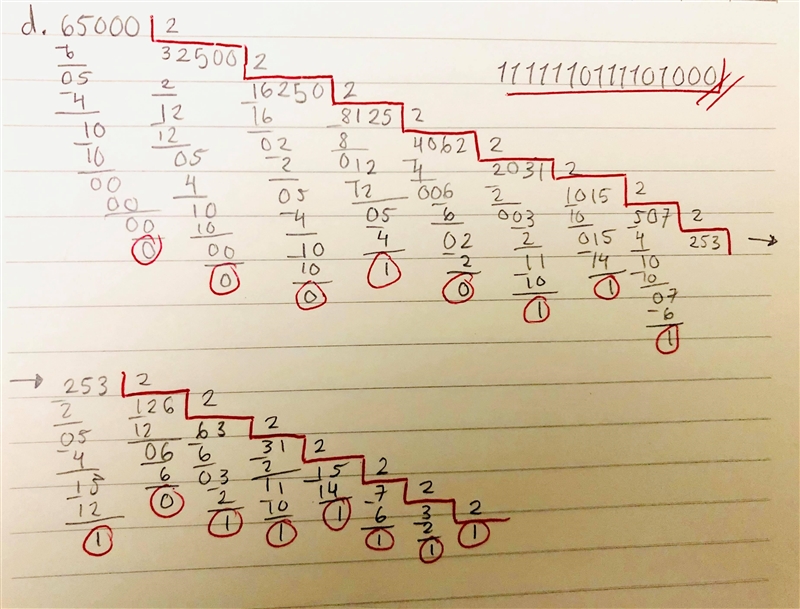 d. 65000 2
-6 32500 2
1111110111101000
05 -2 16250 2
-4 12 -16 8125 2
10 -12 02 -8 4062 2
-10 05 -2 012 -4 2031 2
00 -4 05 -12 006 -2 1015 2
-00 10 -4 05 -6 003 -10 507 2
00 -10 10 -4 02 -2 015 -4 253 →
0 00 -10 1 -2 11 -14 10
0 0 0 -10 1 -10
1 07
-6
1
→ 253 2
-2 126 2
05 -12 63 2
-4 06 -6 31 2
13 -6 03 -2 15 2
-12 0 -2 11 -14 7 2
1 1 -10 1 -6 3 2
1 1 -2 1
1